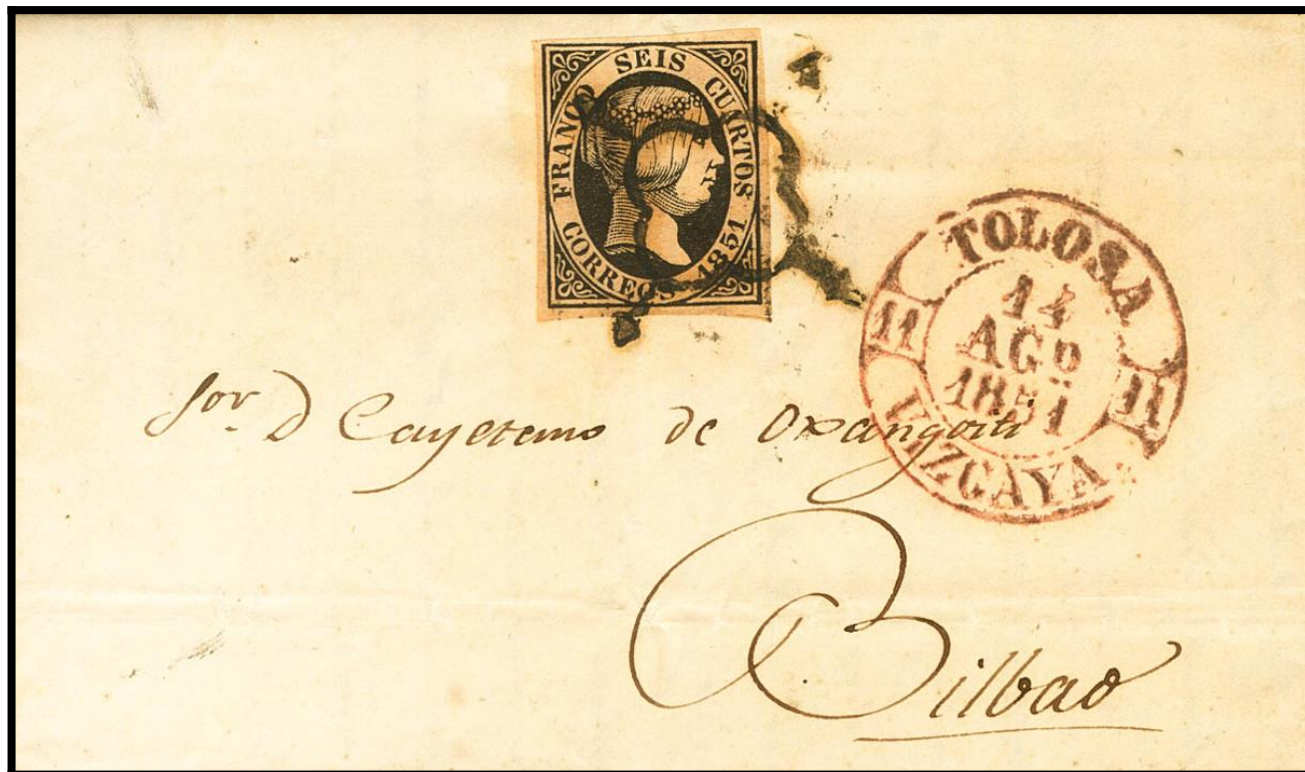 FRANCO SEIS CUARTOS
CORREOS 1851
TOLOSA
14
AGO
1851
11 11
VIZCAYA.
Sor. D Cayetano de Oxangoiti
Bilbao